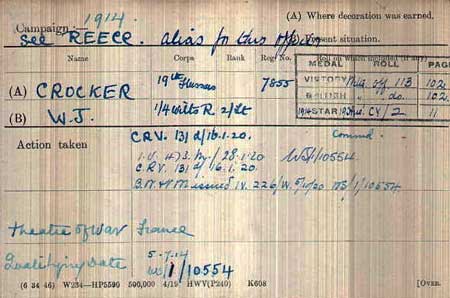 Campaign :— 1914
(A) Where decoration was earned.
see REECE. alias for this officer
(B) Present situation.
Name Corps Rank Reg. No. Roll on which included (if any)
MEDAL ROLL PAGE
(A) CROCKER 19th Hussars 7855
VICTORY off 113 102
BRITISH " do. 102
(B) W.J. 1/4 Wilts R 2/Lt
14 STAR 2 11
Action taken
C.R.V. 131 d/16.1.20.
28.1.20 10554
C.R.V. 131 d/ 16.1.20.
issued IV. 226/W. 1/10554
Theatre of War France
Qualifying Date 5-7-14
1/10554
(6 34 46) W234—HP5590 500,000 4/19 HWV(P240) K608 [OVER.